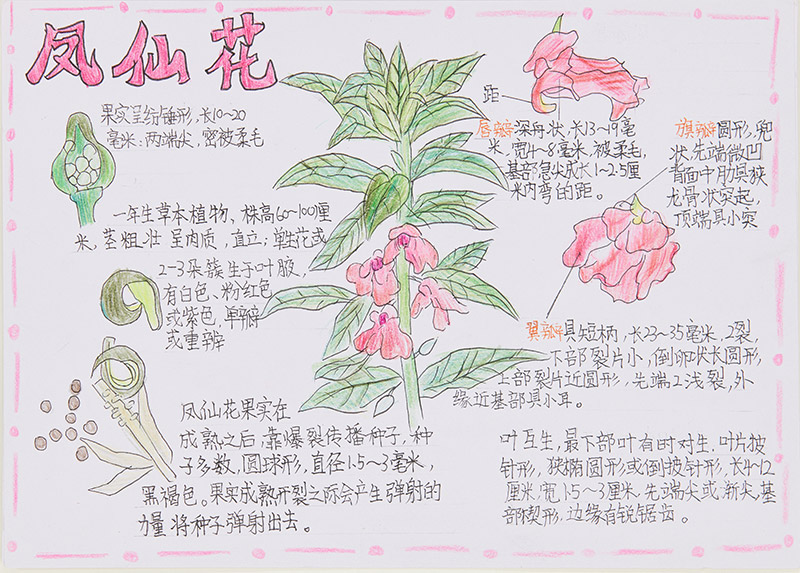 凤仙花
果实呈纺锤形，长10~20
毫米：两端尖，密被柔毛
一年生草本植物、株高60-100厘
米，茎粗壮 呈肉质，直立；单生花或
2-3朵簇生于叶腋，
有白色、粉红色
或紫色，单瓣
或重辨
凤仙花果实在
成熟之后，靠爆裂传播种子，种
子多数，圆球形，直径1.5~3毫米，
黑褐色。果实成熟开裂之际会产生弹射的
力量 将种子弹射出去。
距
唇瓣深舟状，长13~19毫
米，宽4~8毫米，被柔毛，
基部急尖成长1-2.5厘
米内弯的距。
旗瓣圆形，兜
状，先端微凹
背面中肋具狭
龙骨状突起，
顶端具小突
翼瓣具短柄，长23~35毫米，2裂，
下部裂片小，倒卵状长圆形，
上部裂片近圆形，先端2浅裂，外
缘近基部具小耳。
叶互生，最下部叶有时对生，叶片披
针形，狭椭圆形或倒披针形，长4~12
厘米，宽1.5~3厘米，先端尖或渐尖，基
部楔形，边缘有锐锯齿。